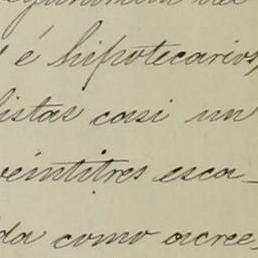 é hipotecarios,
istas casi un
veintitres esca-
da como acree-